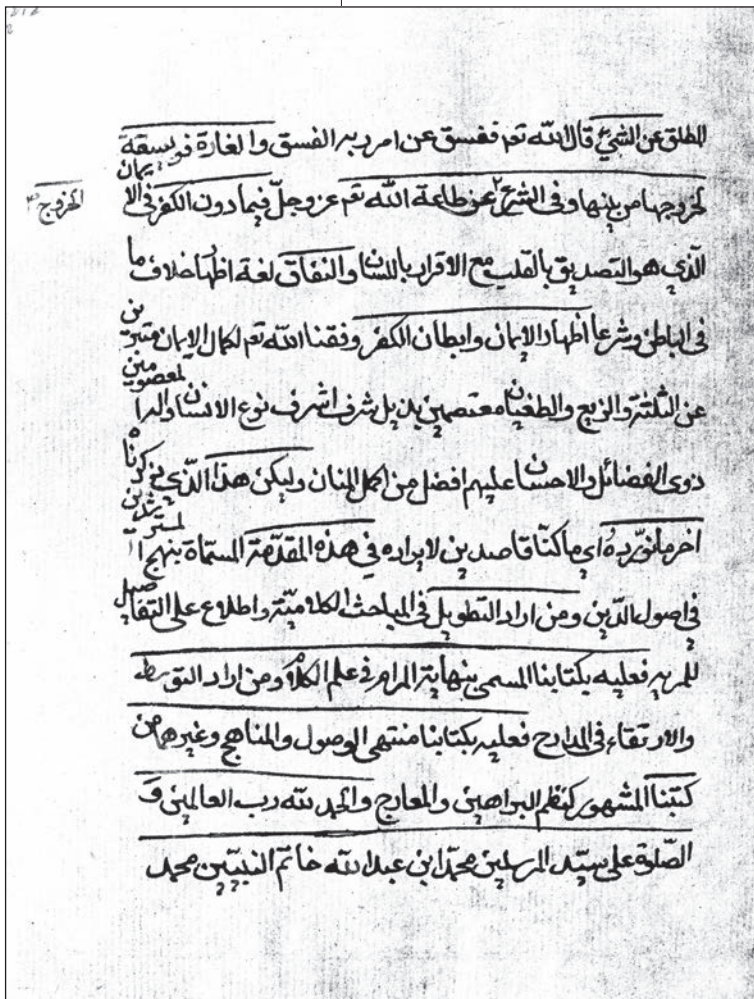 المطلق عن الشيئ قال الله تعم ففسق عن امر ربه الفسق والفارة فويسقة
لخروجها من بيتها وفى الشرع عن طاعة الله تعم عز وجلّ فيما دون الكفر فى الايمان
الخروج
الّذي هو التصديق بالقلب مع الاقرار باللسان والنفاق لغة اظهار خلاف ما
فى الباطن وشرعا اظهار الايمان وابطان الكفر وفقنا الله تعم لكمال الايمان متبرين
عن الثلثة والزيغ والطغيان معتصمين بذيل شرف اشرف نوع الانسان والمعصومين
ذوى الفضائل والاحسان عليهم افضل من اكمل المنان وليكن هذا الّذي ذكرناه
اخر ما نورده اي ما كنّا قاصدين لايراده فى هذه المقدّمة المسمّاة بنهج المسترشدين
فى اصول الدّين ومن اراد التطويل فى المباحث الكلاميّة واطلاع على التفاصيل
للمريد فعليه بكتابنا المسمى بنهاية المرام فى علم الكلام ومن اراد التوسط
والارتقاء فى المدارج فعليه بكتابنا منتهى الوصول والمناهج وغيرهما من
كتبنا المشهور كنظم البراهين والمعارج والحمد لله رب العالمين و
الصّلوة على سيّد المرسلين محمّد ابن عبدالله خاتم النبيّين محمد